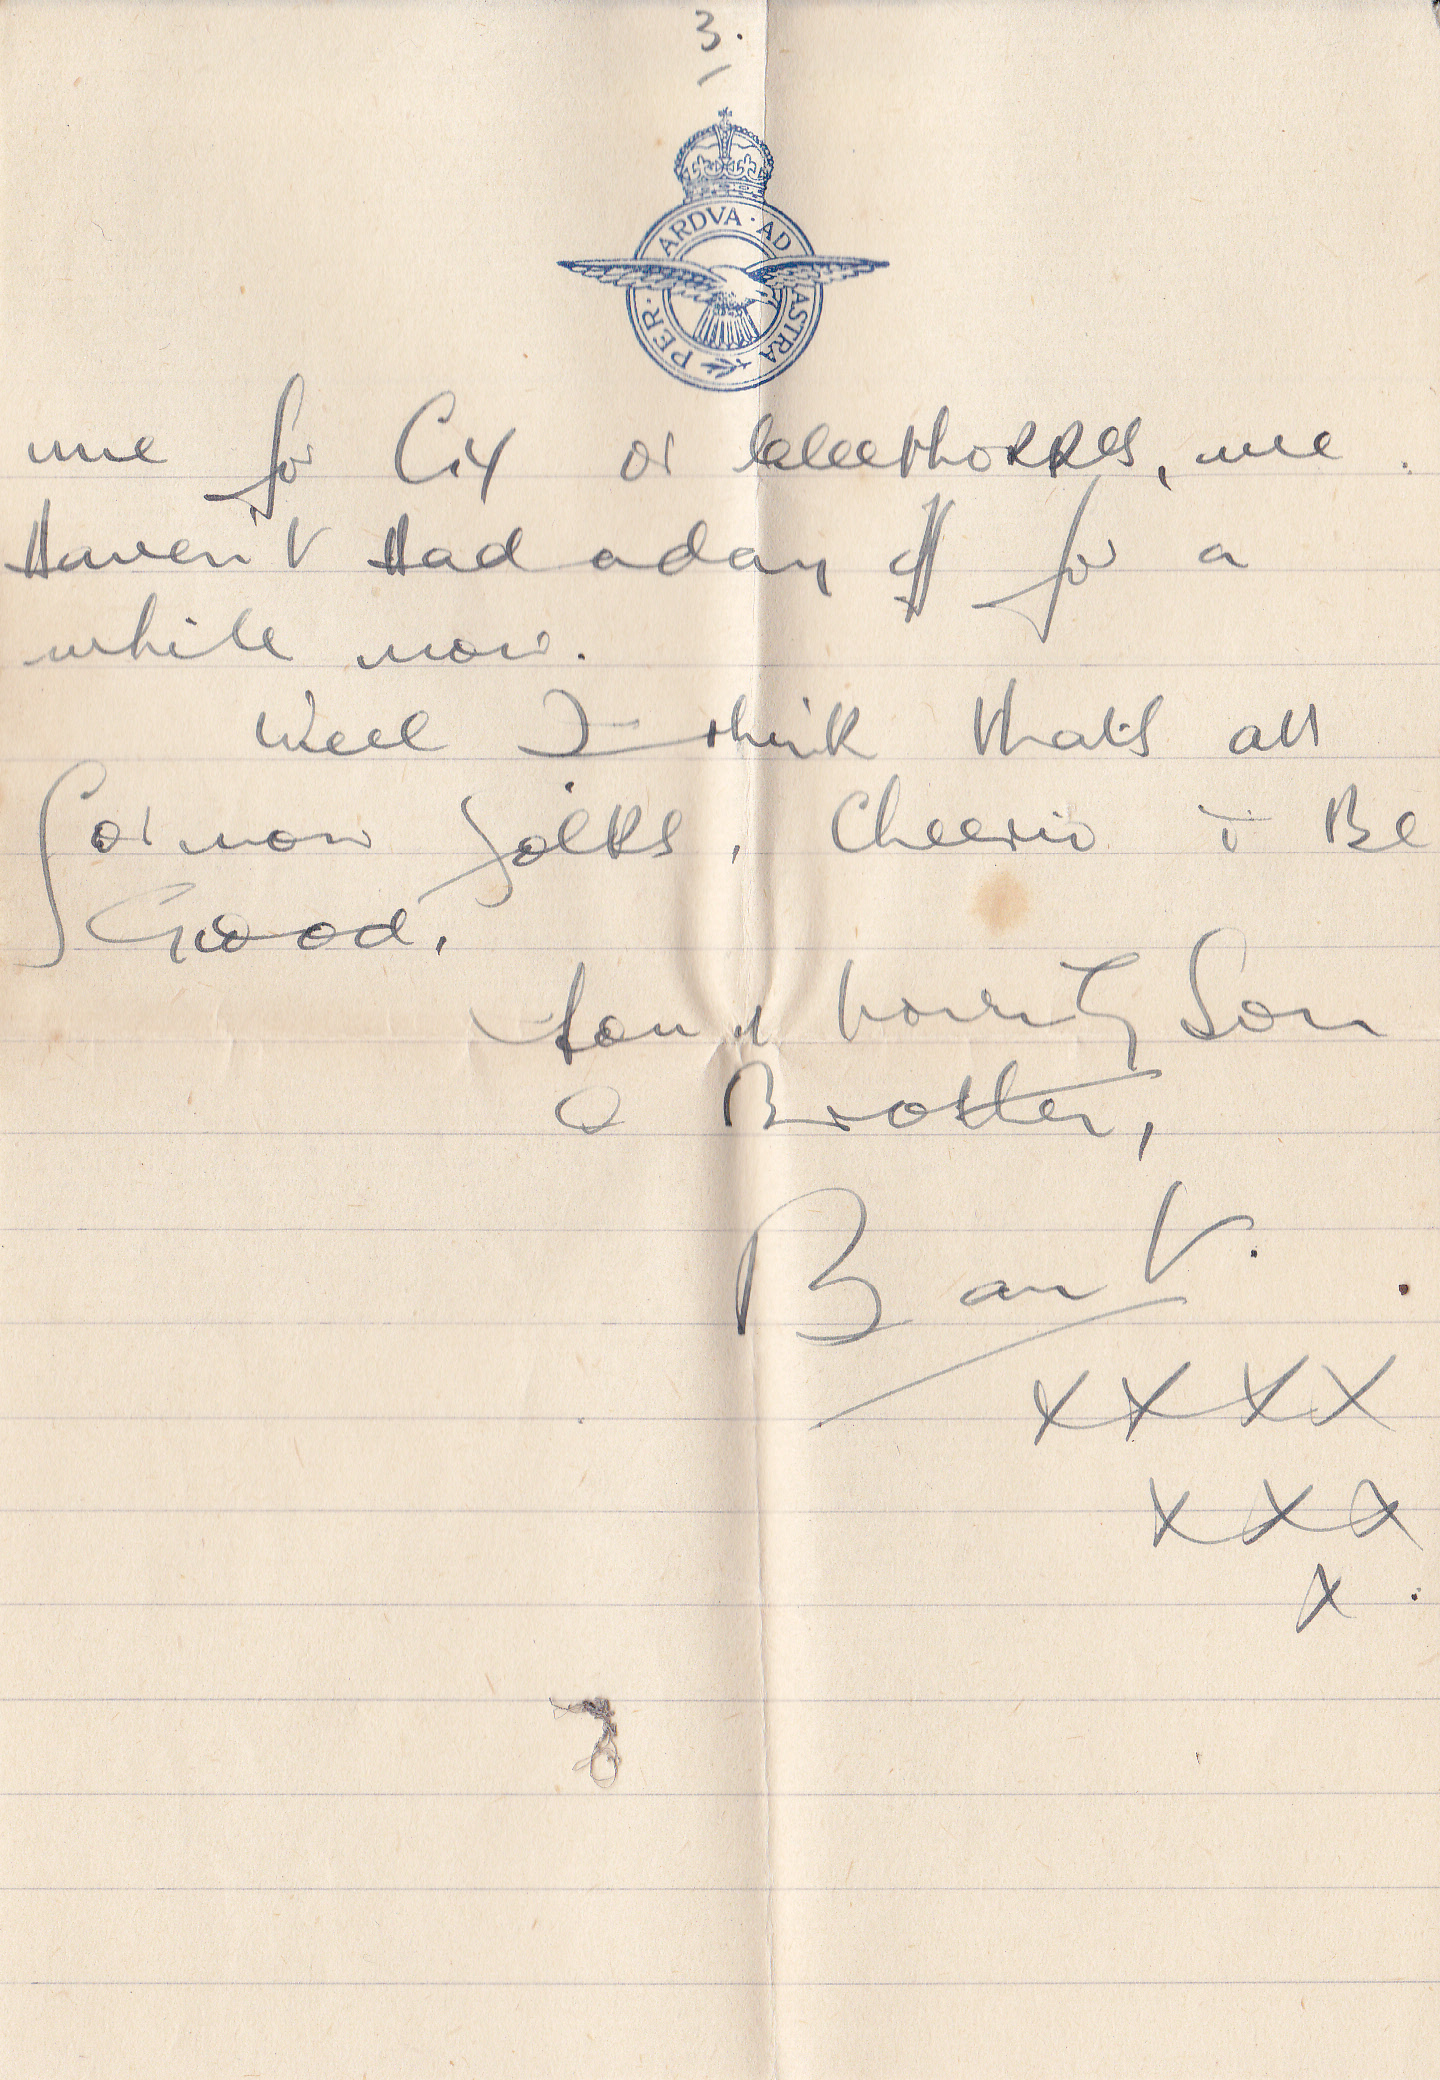 3.
PER · ARDVA · AD ASTRA
me for City or Cleethorpes, we
Haven't Had a day off for a
while now.
Well I think that's all
for now folks, Cheerio & Be
Good.
Your Son
& Brother,
Bant.
x x x x
x x x
x